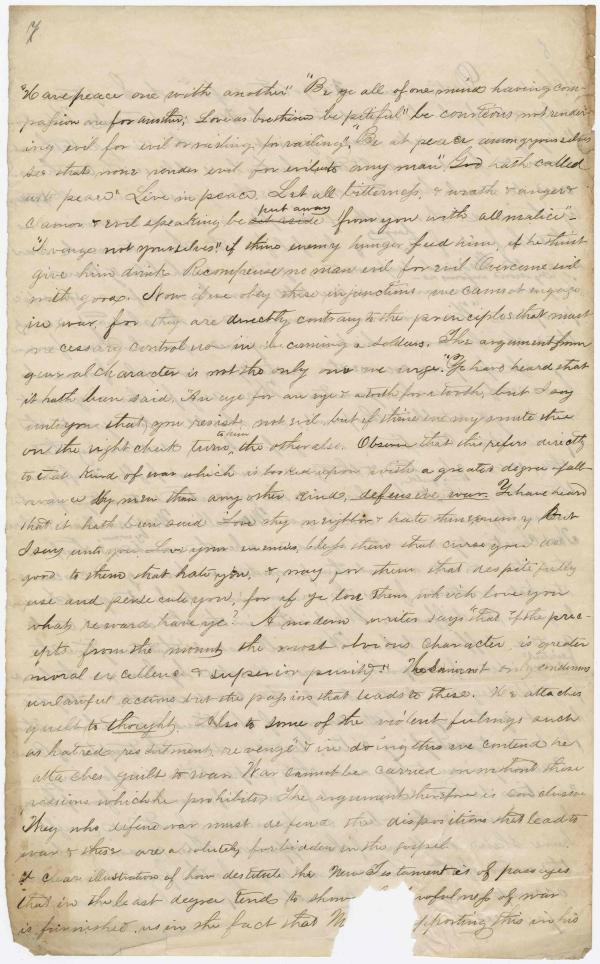 7
"Have peace one with another" "Be ye all of one mind having com-
passion one for another; Love as brethren be pitiful" be courteous not render-
ing evil for evil or railing for railing", "Be at peace among yourselves
see that none render evil for evil unto any man", God hath called
us to peace" Live in peace. Let all bitterness, & wrath & anger &
clamor & evil speaking be set aside put away from you with all malice"-
"Avenge not yourselves" if thine enemy hunger feed him, if he thirst
give him drink Recompense no man evil for evil Overcome evil
with good. Now if we obey these injunctions we cannot engage
in war, for they are directly contrary to the principles that must
necessary control us in becoming a soldiers. The argument from
general character is not the only one we urge. "Ye have heard that
it hath been said, "An eye for an eye & a tooth for a tooth, but I say
unto you that you resist not evil, but if thine enemy smite thee
on the right cheek turn to him the other also. Observe that this refers directly
to that kind of war which is looked upon with a greater degree of all-
owance by men than any other kind, defensive war. Ye have heard
that it hath been said Love thy neighbor & hate thine enemy But
I say unto you Love your enemies, bless them that curse you do
good to them that hate you, &, pray for them that despitefully
use and persecute you, for if ye love them which love you
what reward have ye? A modern writer says "that of the prec-
epts from the mount the most obvious character is greater
moral excellence & superior purity." The Savior not only condemns
unlawful actions but the passions that leads to these. He attaches
guilt to thought, Also to some of the violent feelings such
as hatred, resentment, revenge" & in doing this we contend he
attaches guilt to war War cannot be carried on without those
passions which he prohibits, The argument therefore is conclusive
They who defend war must defend the dispositions that lead to
war & these are absolutely forbidden in the gospel.
A clear illustration of how destitute the New Testament is of passages
that in the least degree tends to show the lawfulness of war
is furnished us in the fact that M pporting this in his